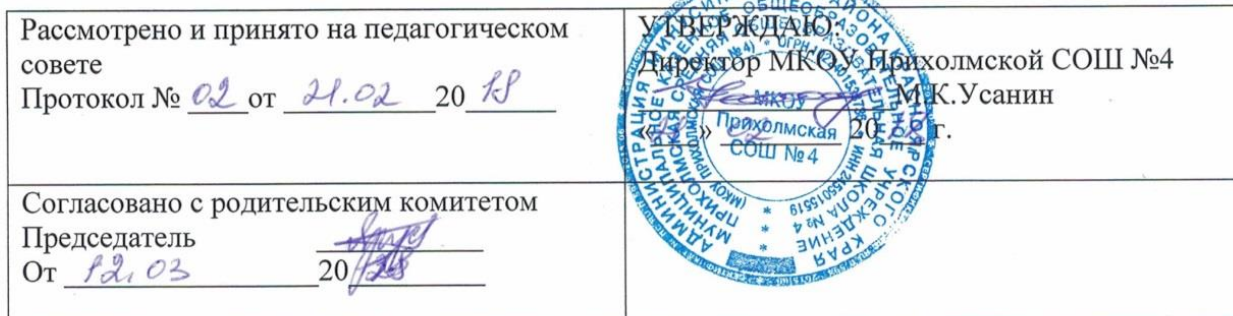 Рассмотрено и принято на педагогическом
совете
Протокол № 02 от 21.02 2018
УТВЕРЖДАЮ:
Директор МКОУ Прихолмской СОШ №4
М.К.Усанин
« » 02 20 г.
МКОУ
Прихолмская
СОШ №4
Согласовано с родительским комитетом
Председатель
От 12.03 20